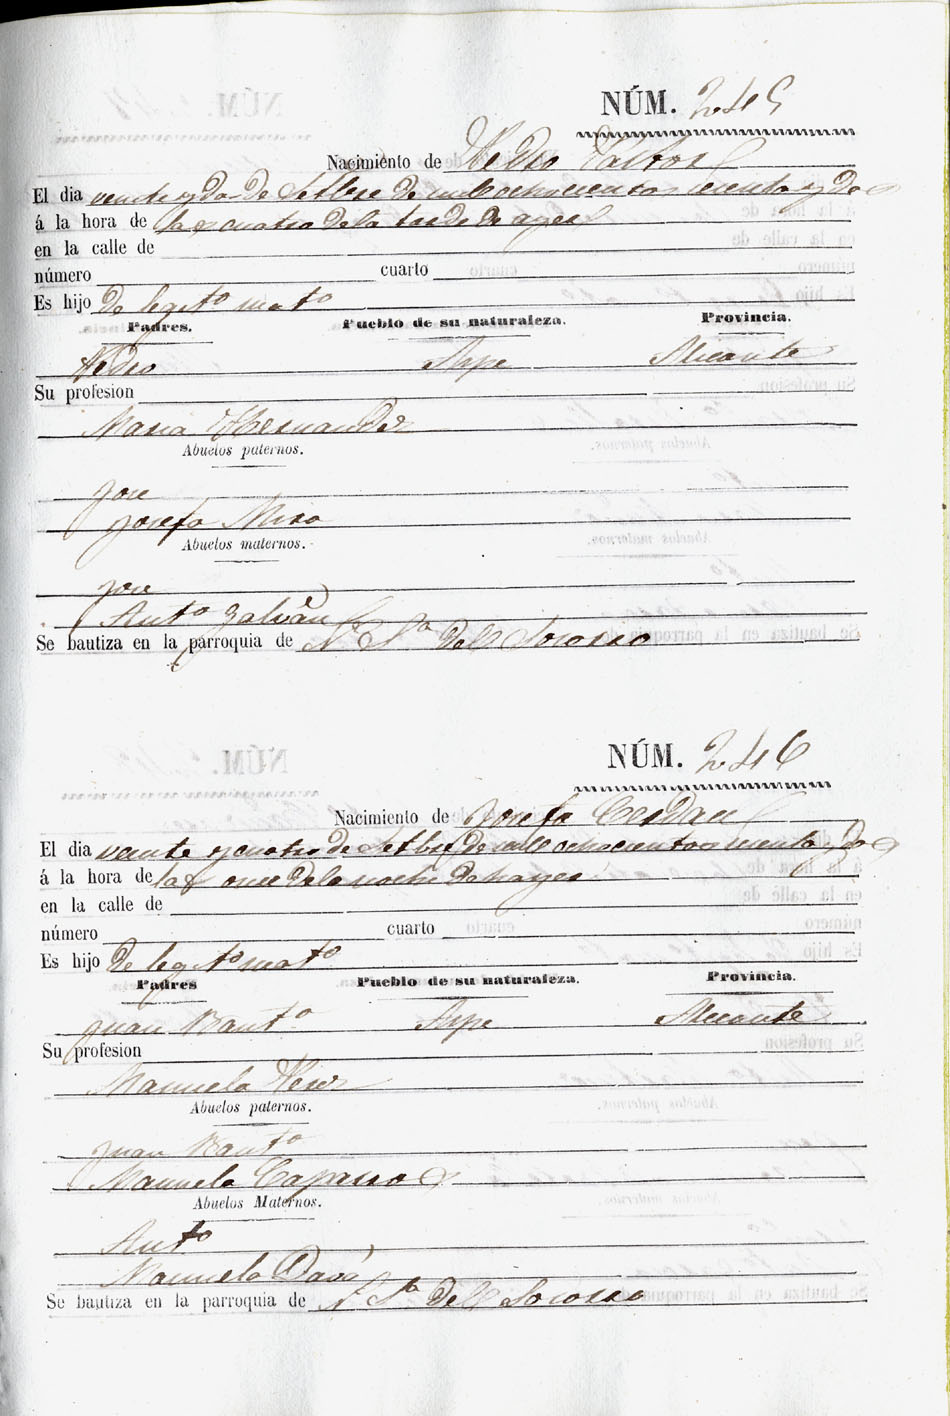 NÚM. 245
Nacimiento de Pedro Pastor
El dia veinte y dos de Setbre de mil ochocientos sesenta y dos
á la hora de las cuatro de la tarde de ayer
en la calle de
número cuarto
Es hijo de legmo mato
Padres. Pueblo de su naturaleza. Provincia.
Pedro Aspe Alicante
Su profesion
Maria Hernandez
Abuelos paternos.
Jose
Josefa Miro
Abuelos maternos.
Jose
Anta Galvañ
Se bautiza en la parroquia de N. Sa. del Socorro
NÚM. 246
Nacimiento de Josefa Cerdan
El dia veinte y cuatro de Setbre de mil ochocientos sesenta y dos
á la hora de las once de la noche de hayer
en la calle de
número cuarto
Es hijo de legto mato
Padres Pueblo de su naturaleza. Provincia.
Juan Bauta Aspe Alicante
Su profesion
Manuela Perez
Abuelos paternos.
Juan Bauta
Manuela Caparros
Abuelos Maternos.
Anto
Manuela Davó
Se bautiza en la parroquia de N. Sa. del Socorro